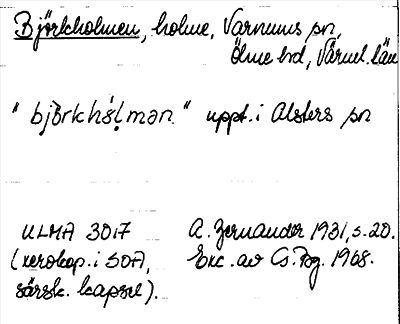 Björkholmen, holme, Varnums sn,
Ölme hd, Värml. län
"björkhólman" uppt. i Alsters sn
ULMA 3017
(xerokop. i SOA,
särsk. kapsel).
A. Zernander 1931, s. 20.
Exc. av CS. Rg. 1968.